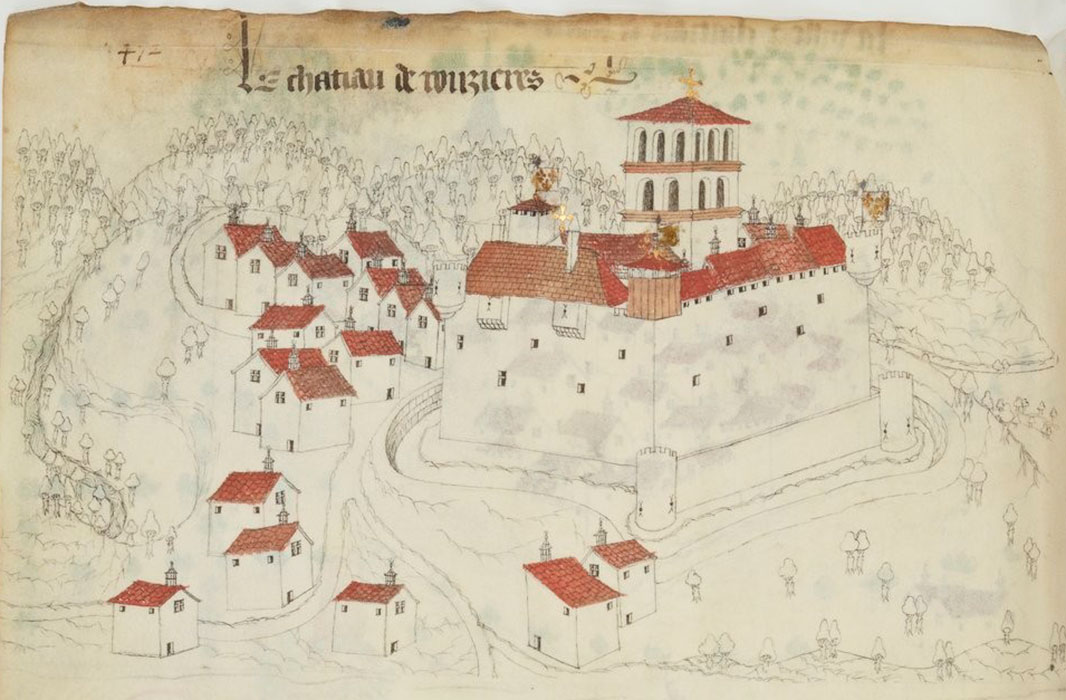 472
Le chatiau de rouzieres